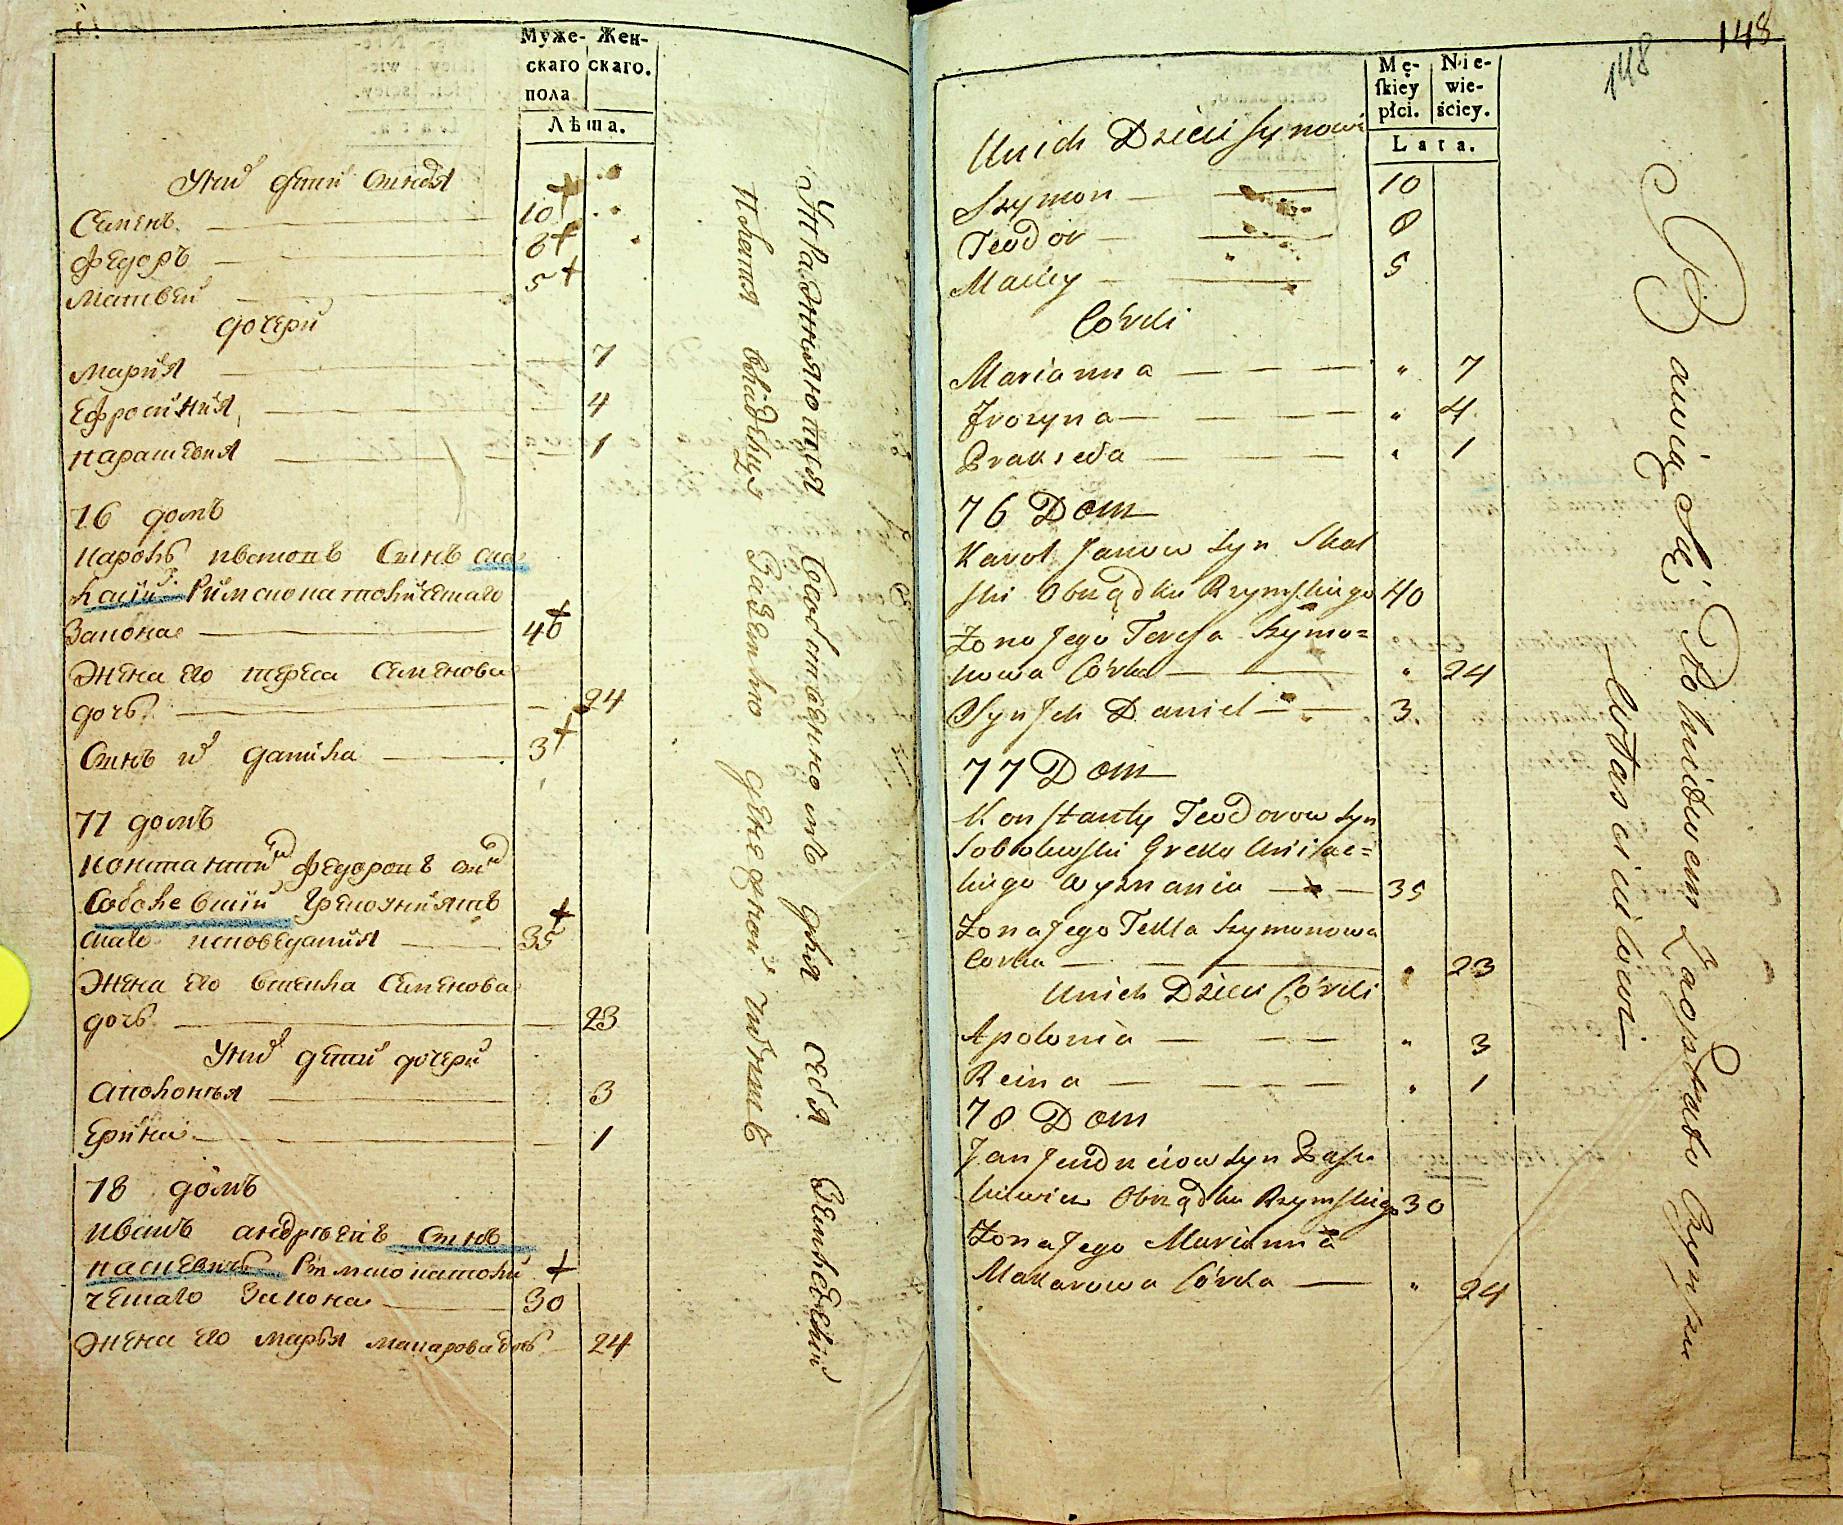 Муже- Жен-
скаго скаго.
пола
Лѣта.
У них дѣти сыновья
Семенъ 10
Федоръ 8
Матвей 5
дочери
Мария 7
Ефросиния 4
Парасковия 1
76 домъ
Кароль Ивановъ Сынъ Ска
лский Римскокатолического
Закона 40
Жена его Тереса Семенова
дочь 24
Сынъ их Данила 3
77 домъ
Константин Федоровъ сын
Соболевский Грекоуниятъ
скаго исповедания 35
Жена его Фекла Семенова
дочь 23
У них дѣти дочери
Аполонья 3
Ерина 1
78 домъ
Иванъ Андрѣевъ Сынъ
Пасневичъ Римскокатоли
ческаго Закона 30
Жена его Марья Макарова дочь 24
148
148
Mę- Nie-
ſkiey wie-
płci. ściey.
Lata.
Unich Dzieci Synowie
Szymon 10
Teodor 8
Maciey 5
Córki
Marianna " 7
Frozyna " 4
Prakseda " 1
76 Dom
Karol Janow Syn Skal
ski Obrządku Rzymskiego 40
Żona Jego Teresa Szymo=
nowa Córka " 24
Syn Jch Daniel 3.
77 Dom
Konstanty Teodorow Syn
Sobolewski Greko Uniac=
kiego wyznania 35
Żona Jego Tekla Szymonowa
Corka " 23
Unich Dzieci Córki
Apolonia " 3
Reina " 1
78 Dom
Jan Jendrzeiow Syn Pasz
kiewicz Obrządku Rzymskiego 30
Żona Jego Marianna
Makarowa Córka " 24
Bawią Się Rolnictwem Zaopłato Czynszu